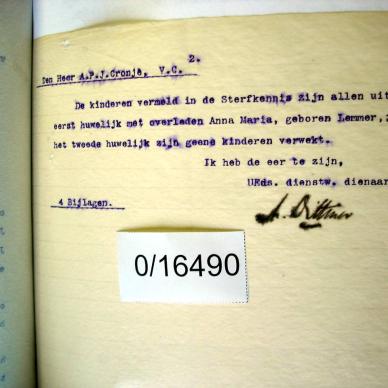 2.
Den Heer A.P.J.Cronje, V.C.
De kinderen vermeld in de Sterfkennis zijn allen uit
eerst huwelijk met overleden Anna Maria, geboren Lemmer,
het tweede huwelijk zijn geene kinderen verwekt.
Ik heb de eer te zijn,
UEds. dienstw. dienaar
4 Bijlagen.
0/16490